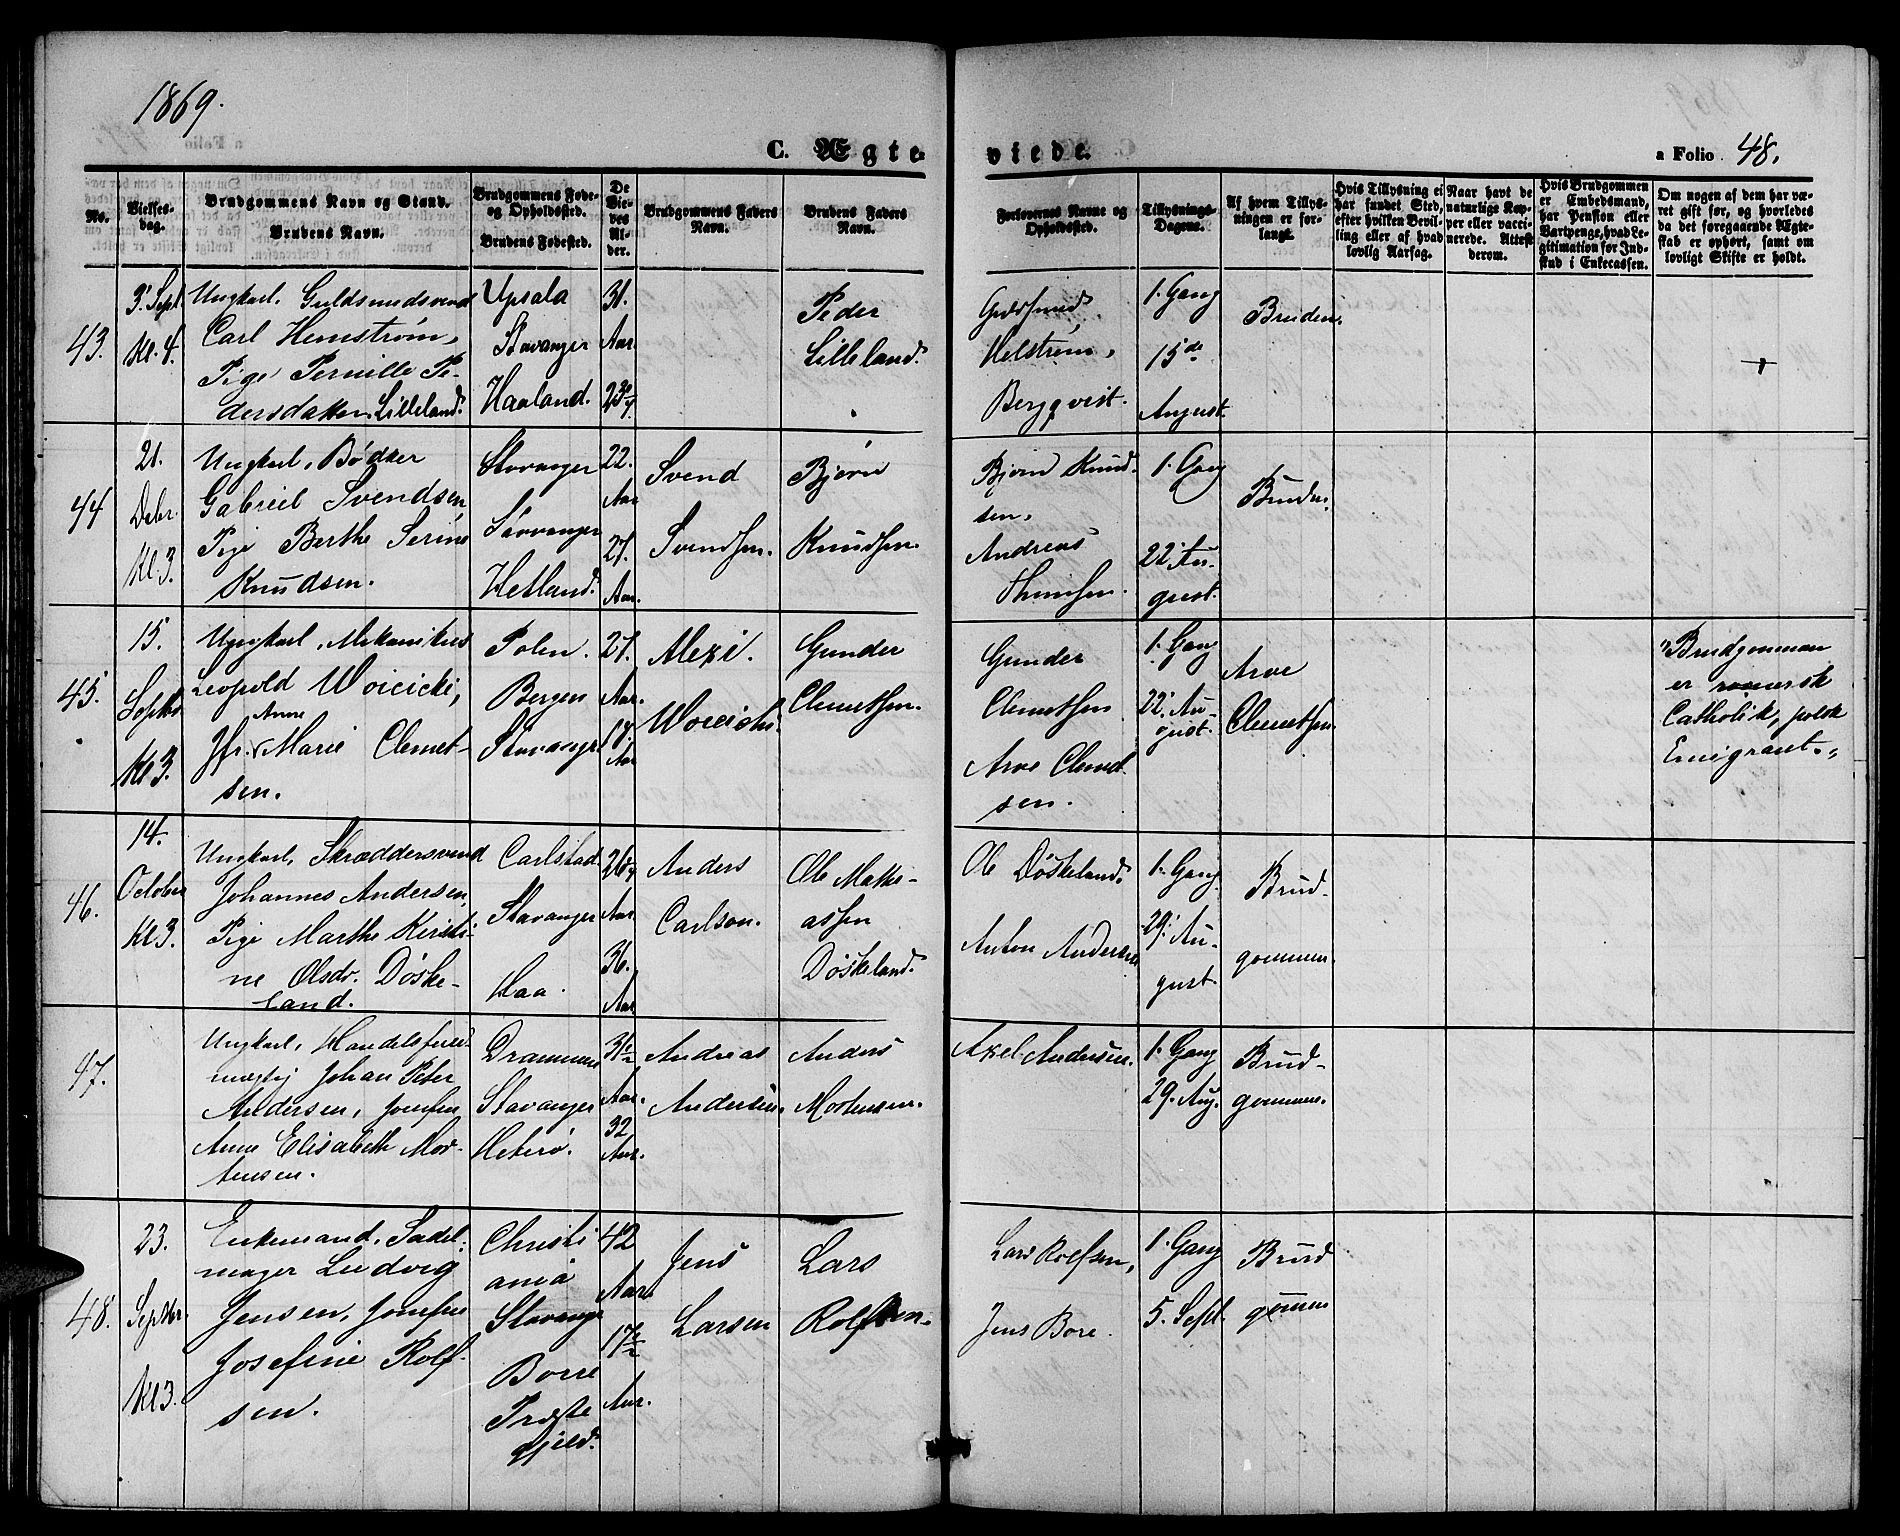 1869.
C. Ægteviede.
a Folio 48.
No.
Vielses-
dag.
Brudgommens Navn og Stand.
Brudens Navn.
Brudgommens Føde-
og Opholdssted.
Brudens Fødested.
De
Vie-
des
Al-
der.
Brudgommens Faders
Navn.
Brudens Faders
Navn.
Forlovernes Navne og
Opholdssted.
Tillysnings-
Dagene.
Af hvem Tillys-
ningen er for-
langt.
Hvis Tillysning ei
har fundet Sted,
efter hvilken Bevil-
ling eller af hvad
lovlig Aarsag.
Naar havt de
naturlige Kop-
per eller vacci-
nerede. Attest
derom.
Hvis Brudgommen
er Embedsmand,
har Pension eller
Vartpenge, hvad Le-
gitimation for Ind-
skud i Enkecassen.
Om nogen af dem har væ-
ret gift før, og hvorledes
da det foregaaende Ægte-
skab er ophørt, samt om
lovligt Skifte er holdt.
43.
3. Sept.
Kl. 4.
Ungkarl. Guldsmedsvend
Carl Hemstrøm,
Pige Pernille Pe-
dersdatter Lilleland.
Upsala
Stavanger
Haaland.
31.
Aar.
Peder
Lilleland.
Guldsmed
Helstrøm,
Bergqvist.
1. Gang
15de
August.
Bruden.
44
21.
Debr.
Kl. 3.
Ungkarl, Bødker
Gabriel Svendsen,
Pige Berthe Serine
Knudsen.
Stavanger
Stavanger
Hetland.
22.
Aar
27.
Aar.
Svend
Svendsen.
Bjørn
Knudsen.
Bjørn Knud-
sen,
Andreas
1. Gang
22. Au-
gust.
Bruden.
45.
15.
Septbr
Kl 3.
Ungkarl, Mekanikus
Leopold Woicicki,
Anne
Jfr. Marie Clemet-
sen.
Polen.
Bergen
Stavanger
27.
Aar.
19
Aar
Alexi.
Woicicki.
Gunder
Clemetsen.
Gunder
Clemetsen
Arve Clemet
sen.
1. Gang
22. Au-
gust.
Arve
Clemetsen.
"Brudgommen
er romersk
Catholik, polsk
Emigrant."
46.
14.
October
Kl 3.
Ungkarl, Skræddersvend
Johannes Andersen,
Pige Marthe Kirsti-
ne Olsdr. Døske-
land.
Carlstad
Stavanger
Haa.
Aar.
36.
Aar
Anders
Carlson.
Ole Mathi-
assen
Døskeland.
Ole Døskeland.
Anton Andersen
1. Gang.
29. Au-
gust.
Brud-
gommen.
47.
Ungkarl, Handelsfuld-
mægtig Johan Peter
Andersen, Jomfru
Anne Elisabeth Mor-
tensen.
Drammen
Stavanger
Heterø.
31½
Aar.
32
Aar.
Andreas
Andersen.
Anders
Mortensen.
Axel Andersen.
1. Gang
29. Aug.
Brud-
gommen.
48.
23.
Septbr.
Kl 3.
Enkemand, Sadel-
mager Ludvig
Jensen, Jomfru
Josefine Rolf-
sen.
Christi
ania
Stavanger
Borre
Præste
gjeld.
42
Aar.
17½
Aar.
Jens
Larsen
Lars
Rolfsen.
Lars Rolfsen,
Jens Bore.
1. Gang
5. Sept.
Brud
gommen